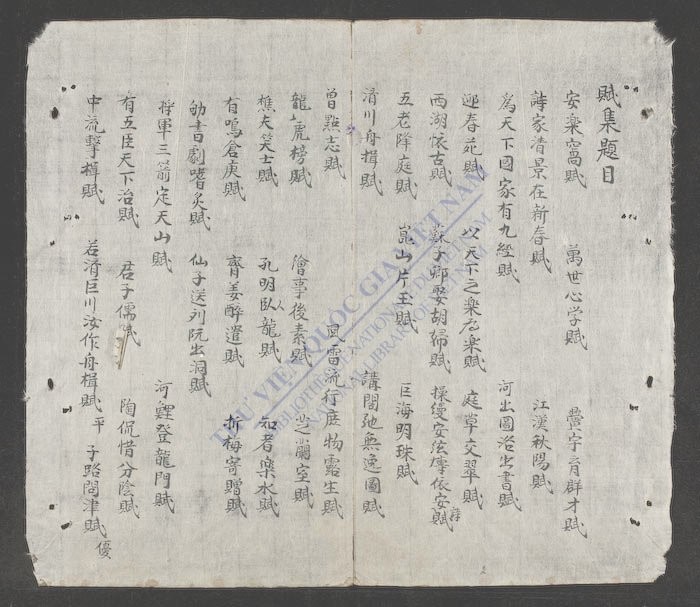 賦集題目
安樂窩賦 萬世心学賦 黌宇育群才賦
詩家清景在新春賦 江漢秋陽賦
爲天下國家有九經賦 河出圖洛出書賦
迎春花賦 以天下之楽为楽賦 庭草交翠賦
西湖懐古賦 蘇子卿娶胡婦賦 操縵安弦博依安賦
五老降庭賦 崑山片玉賦 巨海明珠賦
濟川舟楫賦 講閣無逸圖賦
曽點志賦 風雷流行庶物露生賦
龍虎榜賦 繪事後素賦 芝蘭室賦
樵夫笑士賦 孔明臥龍賦 知者楽水賦
有鳴倉庚賦 齊姜醉遣賦 折梅寄贈賦
劬書劇嗜炙賦 仙子送刘阮出洞賦
將軍三箭定天山賦 河鯉登龍門賦
有五臣天下治賦 君子儒賦 陶侃惜分陰賦
中流擊楫賦 若濟巨川汝作舟楫賦 平 子路問津賦 優
THƯ VIỆN QUỐC GIA VIỆT NAM
BIBLIOTHÈQUE NATIONALE DU VIETNAM
NATIONAL LIBRARY OF VIETNAM